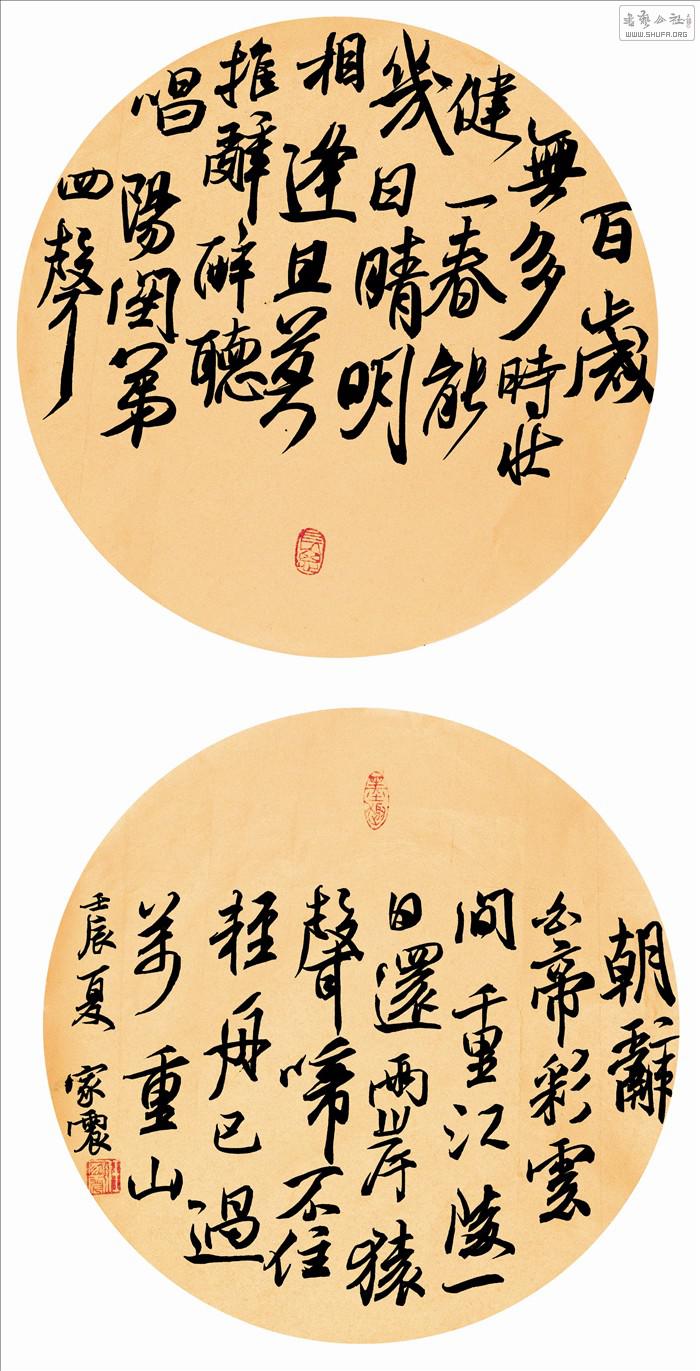 百歲
無多時壯
健一春能
幾日晴明
相逢且莫
推辭醉聽
唱陽關第
四聲
朝辭
白帝彩雲
間千里江陵一
日還兩岸猿
聲啼不住
輕舟已過
萬重山
壬辰夏 家震
書藝公社
WWW.SHUFA.ORG